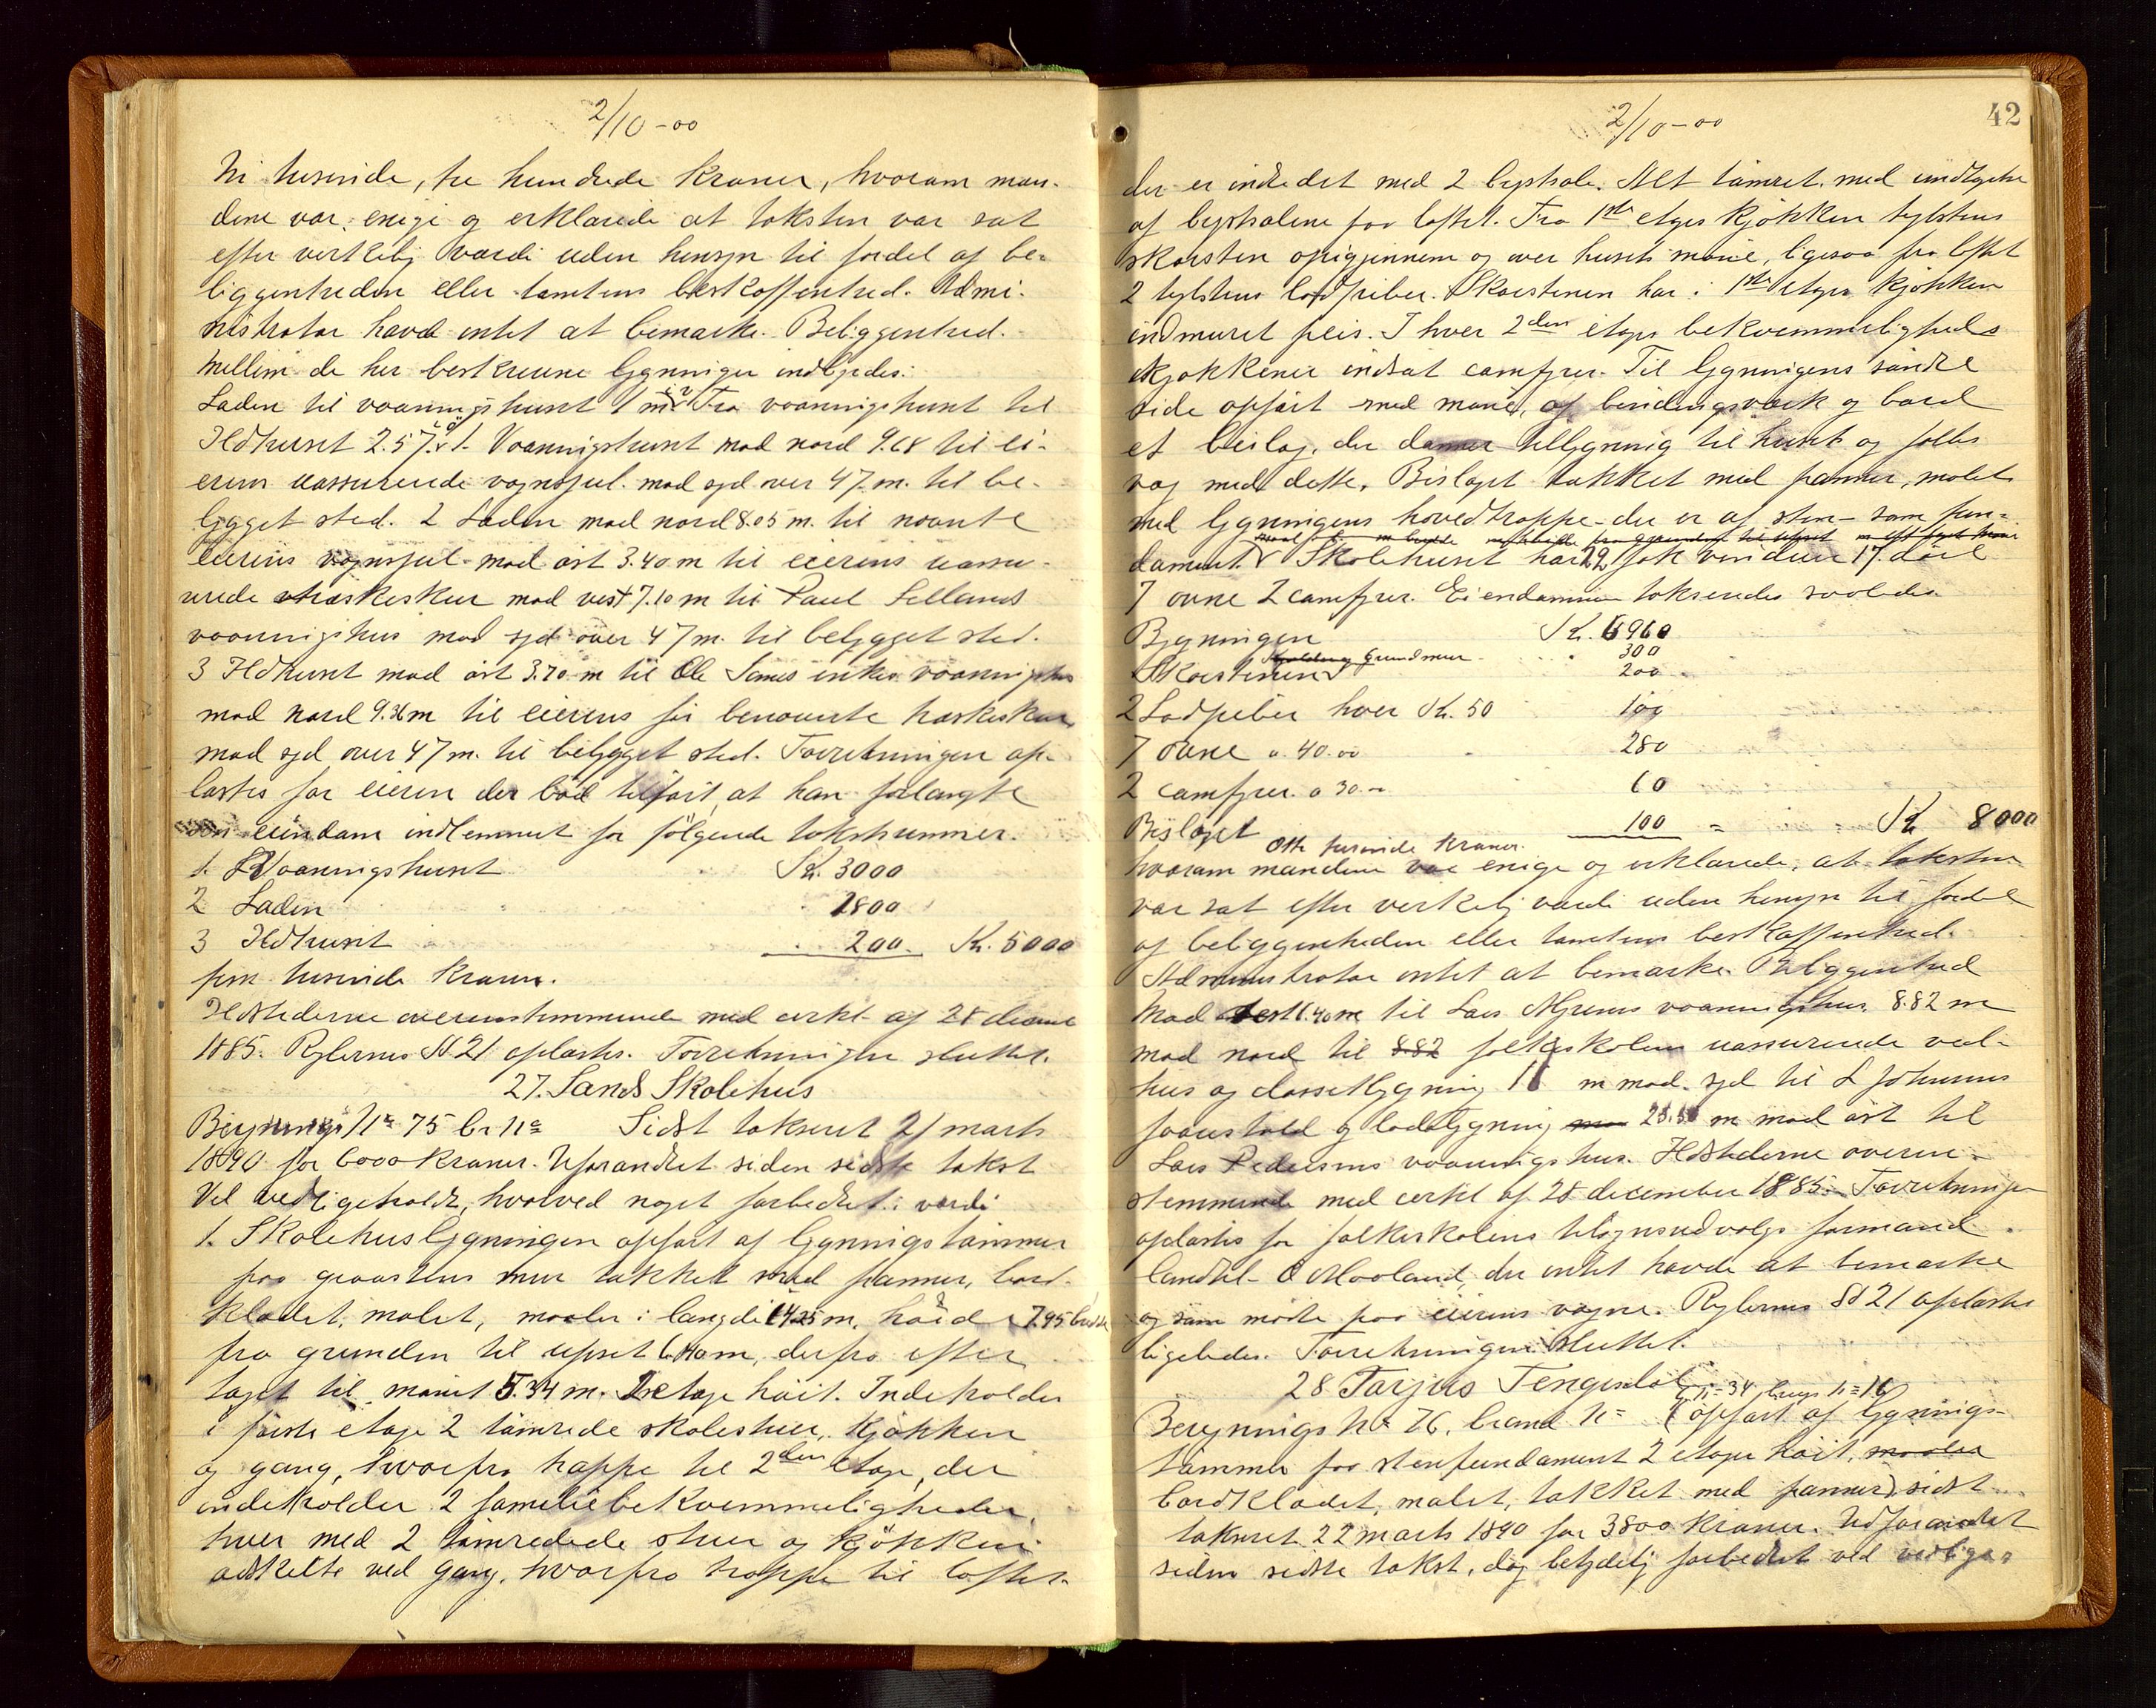 2/10-00
ni tusinde, tre hundrede kroner, hvorom mæn-
dene var enige og erklærede at taksten var sat
efter virkelig værdi uden hensyn til fordel af be-
liggenheden eller tomtens beskaffenhed. Admi-
nistrator havde intet at bemærke. Beliggenhed.
Mellem de her beskrevne bygninger indbyrdes:
Laden til vaaningshuset 1 m Fra vaaningshuset til
Ildhuset 2.57. Vaaningshuset mod nord 9.68 til ei-
erens uassurerede vognsjul. mod syd over 47 m. til be-
bygget sted. 2 Laden mod nord 8.05 m. til nævnte
eierens vognsjul mod øst 3.40 m til eierens uassu-
rerede træskeskur mod vest 7.10 m til Paul Sellands
vaaningshus mod syd over 47 m. til bebygget sted.
3 Ildhuset mod øst 3.70 m til Ole enkes vaaningshus
mod nord 9.36 m til eierens før benævnte træskeskur
mod syd over 47 m. til bebygget sted. Forretningen op-
læstes for eieren der bad tilført, at han forlangte
sin eiendom indlemmet for følgende takstsummer.
1. Vaaningshuset Kr. 3000
2 Laden 1800
3 Ildhuset 200. Kr. 5000
fem tusinde kroner.
Ildstederne overensstemmende med cirkl. af 28 decemb
1885. Rglernes § 21 oplæstes. Forretningen sluttet.
27. Sands Skolehus
Bygnings No 75 br no Sidst takseret 21 marts
1890 for 6000 kroner. Uforandret siden sidste takst
Vel vedligeholdt, hvorved noget forbedret i værdi
1. Skolehusbygningen opført af bygningstømmer
paa graastens mur takket med panner, bord-
klædet, malet, maaler i længde 14.25 m, 7.95 bredde
fra grunden til upset m, derfra efter
taget til mønet 5.34 m. 2 etage høit. Indeholder
i første etage 2 tømrede skolestuer, kjøkken
og gang, hvorfra trappe til 2den etage, der
indeholder 2 familiebekvemmeligheder,
hver med 2 tømrede stuer og kjøkken
adskilte ved gang, hvorfra trappe til loftet.
2/10-00 42
der er indredet med 2 Alt tømret med undtagelse
af paa loftet. Fra 1ste etages kjøkken teglstens
skorsten opigjennem og over husets møne, ligesaa fra loftet
2 teglstens lodpiber. Skorstenen har i 1ste etages kjøkken
indmuret peis. I hver 2den etages bekvemmeligheds
kjøkkener indsat comfyrer. Til bygningens søndre
side opført med møne, af bindingsværk og bord
et bislag, der danner tilbygning til huset og følles
vag med dette. Bislaget takket med panner, malet
med bygningens hovedtrappe der er af sten som fun-
dament. Skolehuset har 22 fok vinduer 17 døre
7 ovne 2 comfyrer. Eiendommen takseredes saaledes
Bygningen Kr. 6960
Grundmur 300
Skorstenen 200
2 Lodpiber hver Kr. 50 100
7 ovne a 40.00 280
2 comfyrer a 30.00 60
Bislaget 100 = Kr 8000
Otte tusinde kroner.
hvorom mændene var enige og erklærede, at taksten
var sat efter virkelig værdi uden hensyn til fordel
af beliggenheden eller tomtens beskaffenhed.
Administrator intet at bemærke. Beliggenhed
Mod vest 6.40 m til Lars vaaningshus. 8.82 m
mod nord til 8.82 folkeskolens uassurerede ved-
hus og closetbygning m mod syd til L Johnsens
faarestald og ladebygning m mod øst til
Lars Pedersens vaaningshus. Ildstederne overens-
stemmende med cirkl af 28 december 1885. Forretningen
oplæstes for folkeskolens tilsynsudvalgs formand
landhdl. O Moland, der intet havde at bemærke
og som mødte paa eierens vegne. Rglernes § 21 oplæstes
ligeledes. Forretningen sluttet.
28 Tarjus Tengesdal
G no 34 brugs no 16
Berynnings No 76, brand no (opført af bygnings-
tømmer paa stenfundament 2 etager høit, maaler
bordklædet, malet, takket med panner) sidst
takseret 22 marts 1890 for 3800 kroner. Uforandret
siden sidste takst, dog betydelig forbedret ved vedlige-